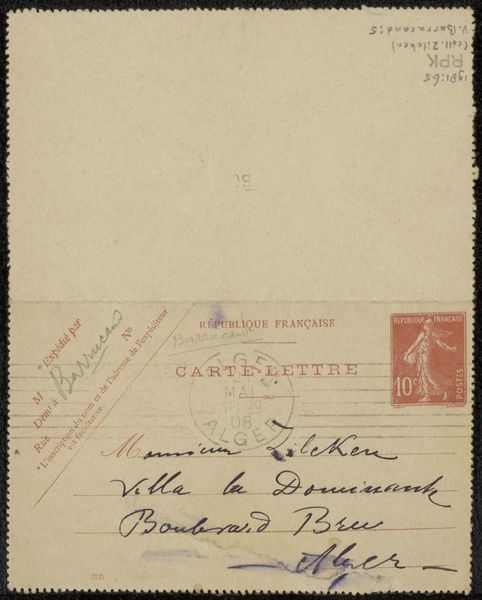 V. Barrucand: 5
(coll. Zilcken)
RPK
1981:65
RÉPUBLIQUE FRANÇAISE
Barrucand
CARTE-LETTRE
RÉPUBLIQUE FRANÇAISE
10c
POSTES
ALGER
MAI
08
ALGER
*Expédié par
M Barrucand
Demt à
Rue
No
*L'inscription du nom et de l'adresse de l'expéditeur
est facultative.
Monsieur Zilcken
Villa la Dominante
Boulevard Bru
Alger